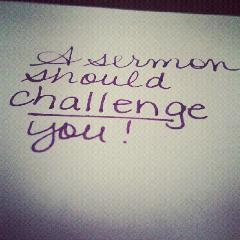 A sermon
should
challenge
you!